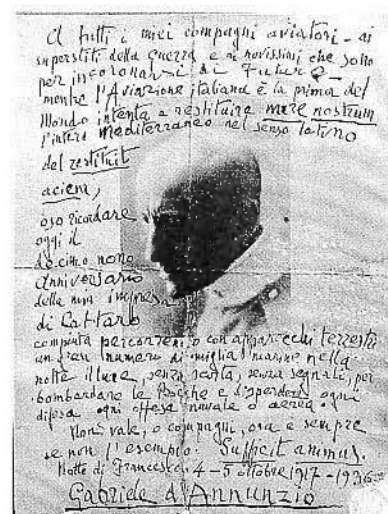 A tutti i miei compagni aviatori - ai
superstiti della Guerra e ai novissimi che sono
per incoronarsi di Futuro -
mentre l'Aviazione italiana è la prima del
Mondo intenta a restituire mare nostrum
l'intero mediterraneo nel senso latino
del restituit
aciem,
oso ricordare
oggi il
decimo nono
anniversario
della mia impresa
di Cattaro
compiuta percorrendo con apparecchi terrestri
un gran numero di miglia marine nella
notte illune, senza scorta, senza segnali, per
bombardare le Bocche e disperdere ogni
difesa ogni offesa navale o aerea.
Non vale, o compagni, ora e sempre
se non l'esempio. Sufficit animus.
Notte di Francesco: 4-5 ottobre 1917-1936
Gabriele d'Annunzio